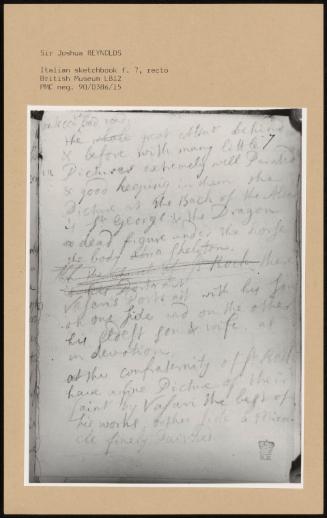 Sir Joshua REYNOLDS
Italian sketchbook f. 7, recto
British Museum LB12
PMC neg. 90/0386/15
7
the great Altar behind
& before with many little
Pictures extremely well Painted
& good keeping in them the
Picture at the Back of the Altar
is St George & the Dragon
a dead figure under the horse
the body a skeleton.
St Rock there
Vasari's Portrait with his
on one side and on the other
his eldest son & wife at
in devotion
at the confraternity of St Rock
have a fine Picture of their
Saint by Vasari the best of
his works on the side a
finely Painted